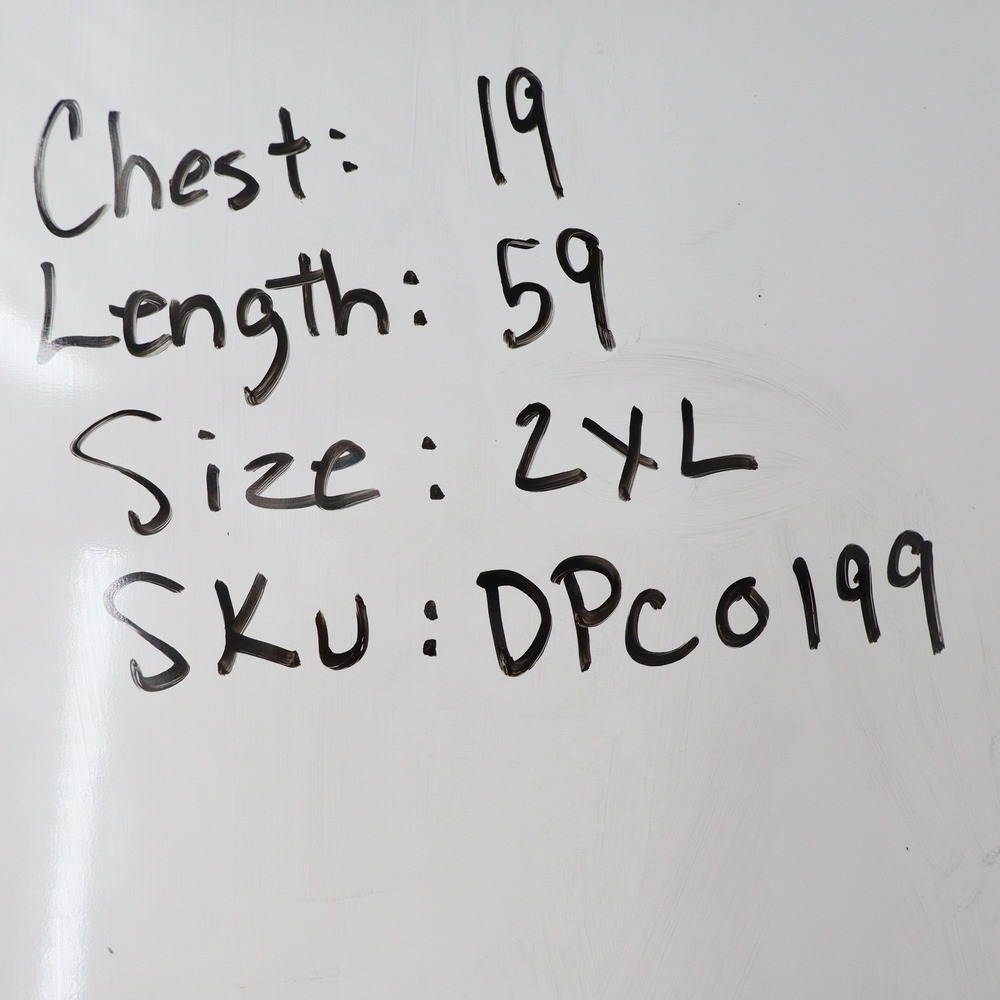 Chest: 19
Length: 59
Size: 2XL
SKU: DPC0199